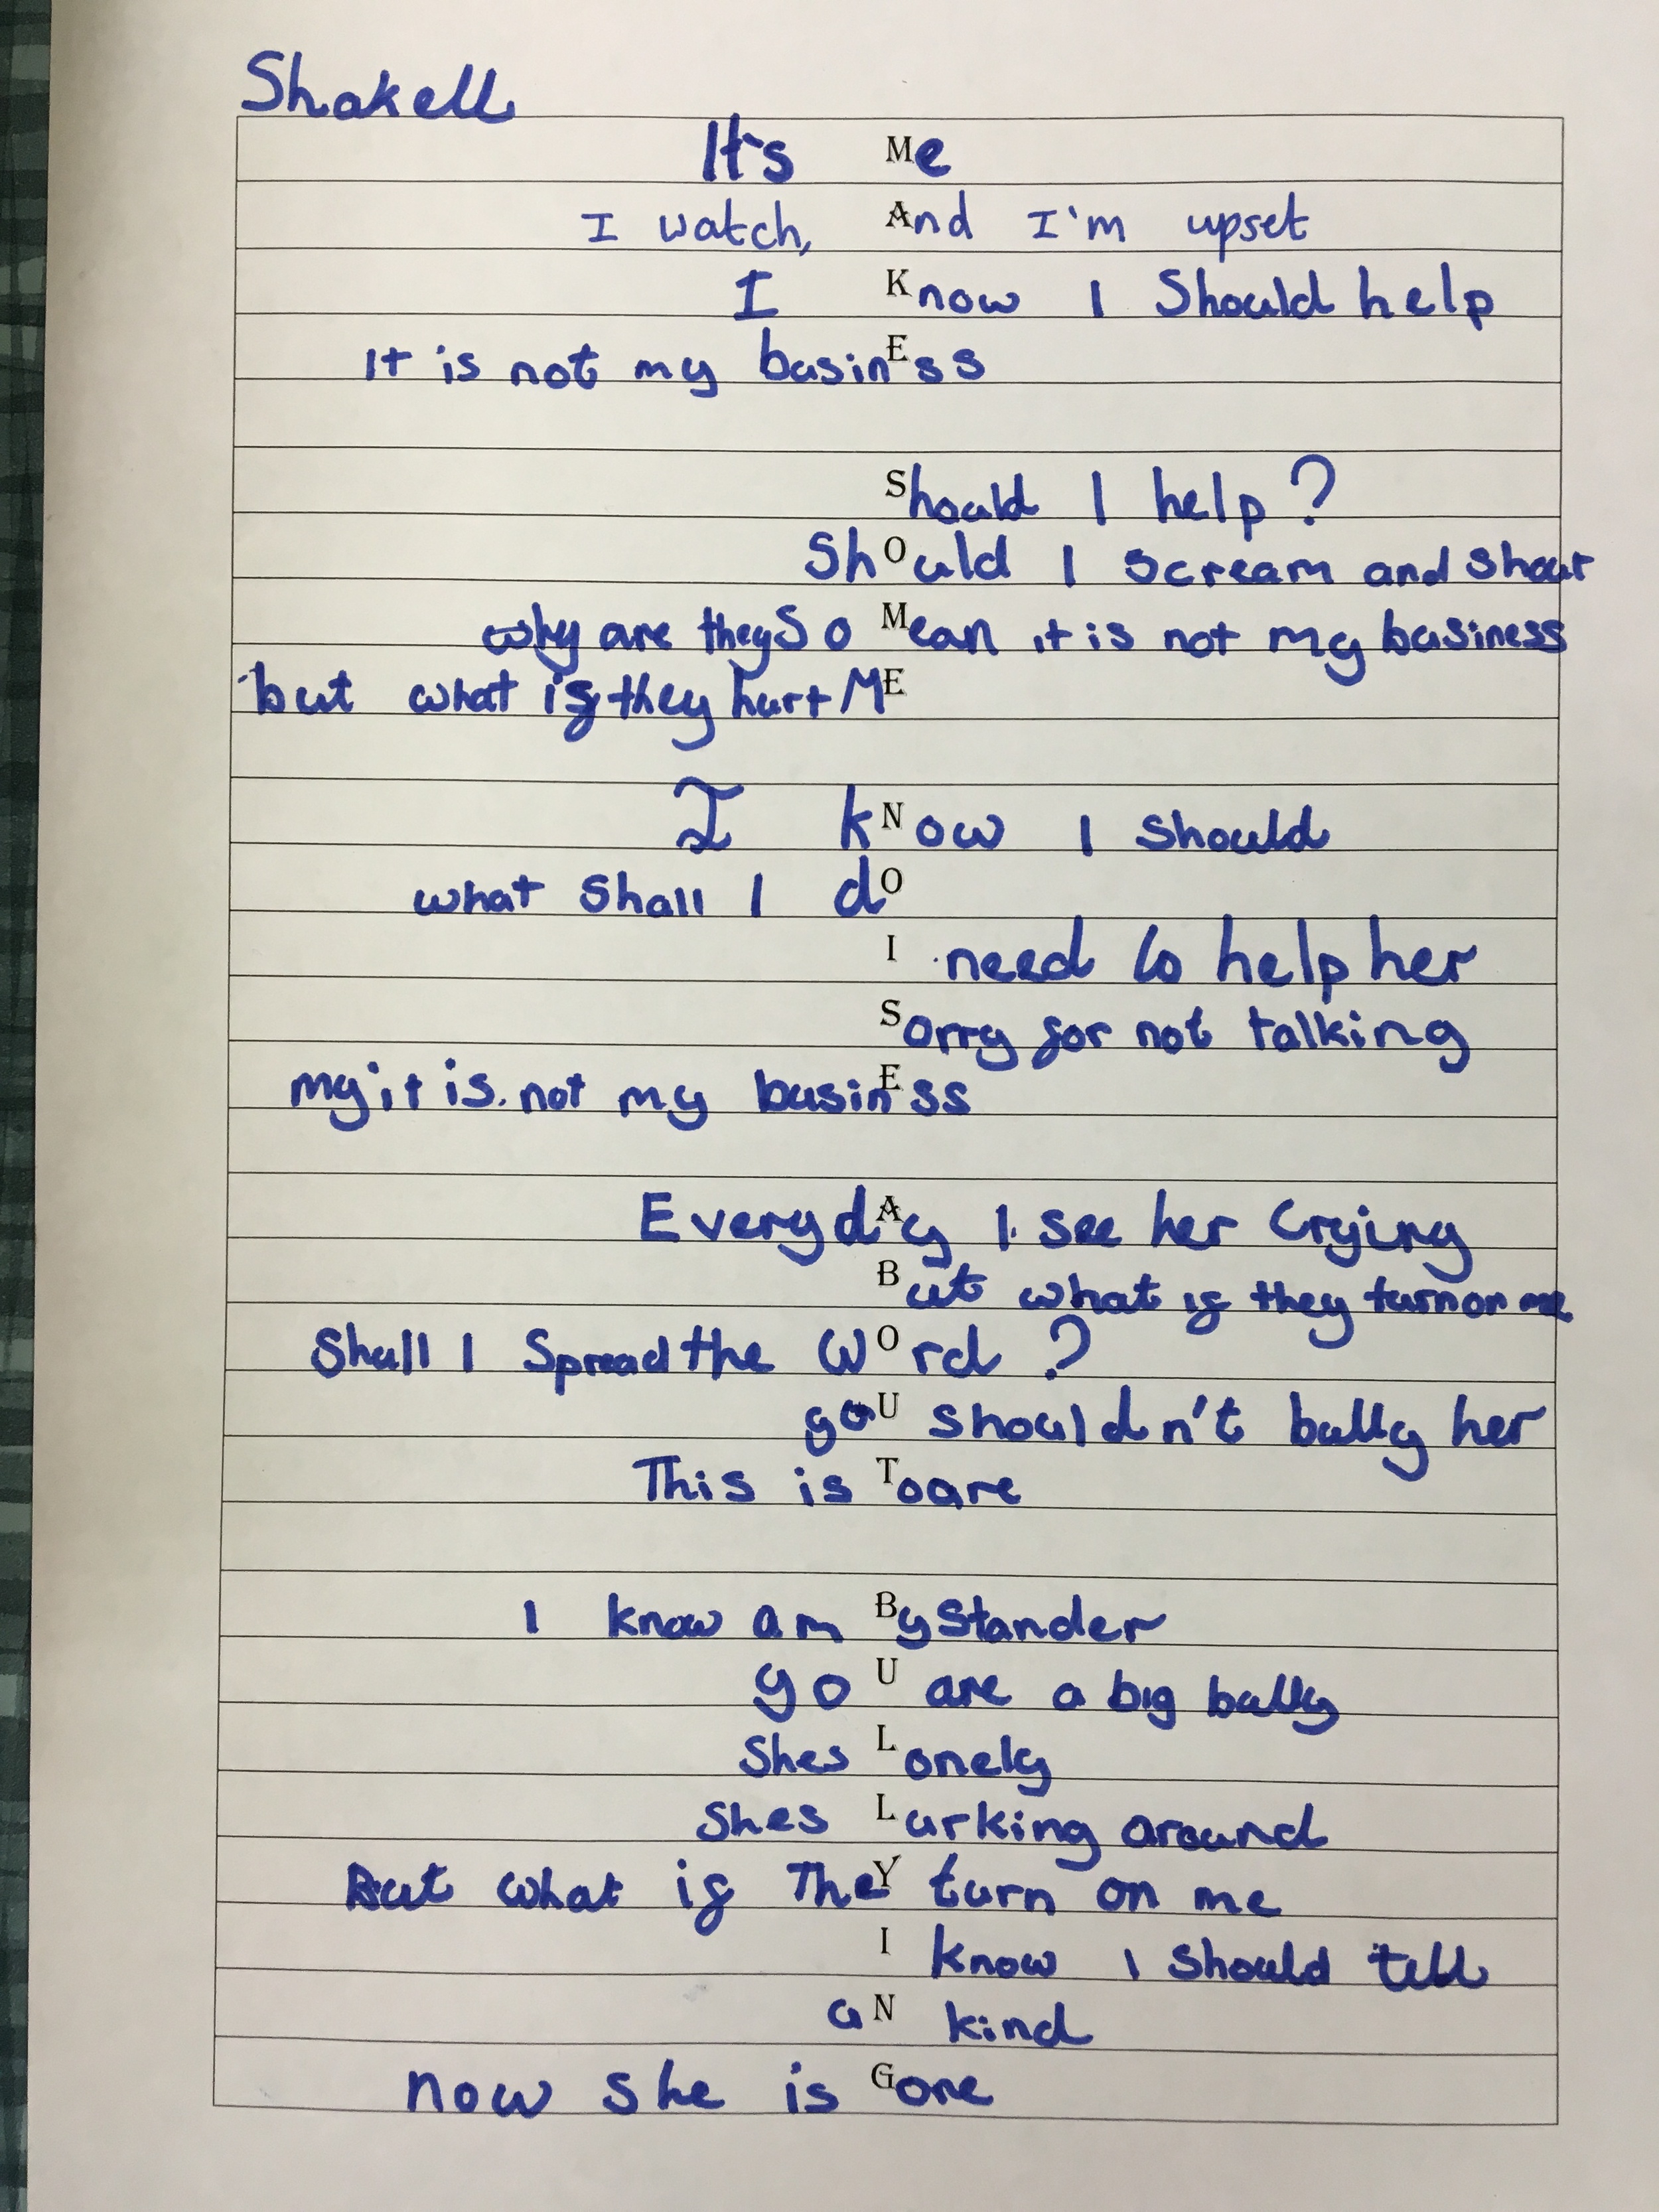 Shakell
It's Me
I watch, And I'm upset
I Know I Should help
It is not my businEss
Should I help ?
ShOuld I Scream and Shout
why are they So Mean it is not my business
but what if they hurt ME
I kNow I Should
what Shall I dO
I need to help her
Sorry for not talking
my it is. not my businEss
EverydAy I see her Crying
But what if they turn on me
Shall I Spread the WOrd ?
yoU shouldn't bully her
This is Toare
I know am ByStander
yoU are a big bully
Shes Lonely
Shes Lurking around
But what if TheY turn on me
I know I Should tell
aN kind
now she is Gone